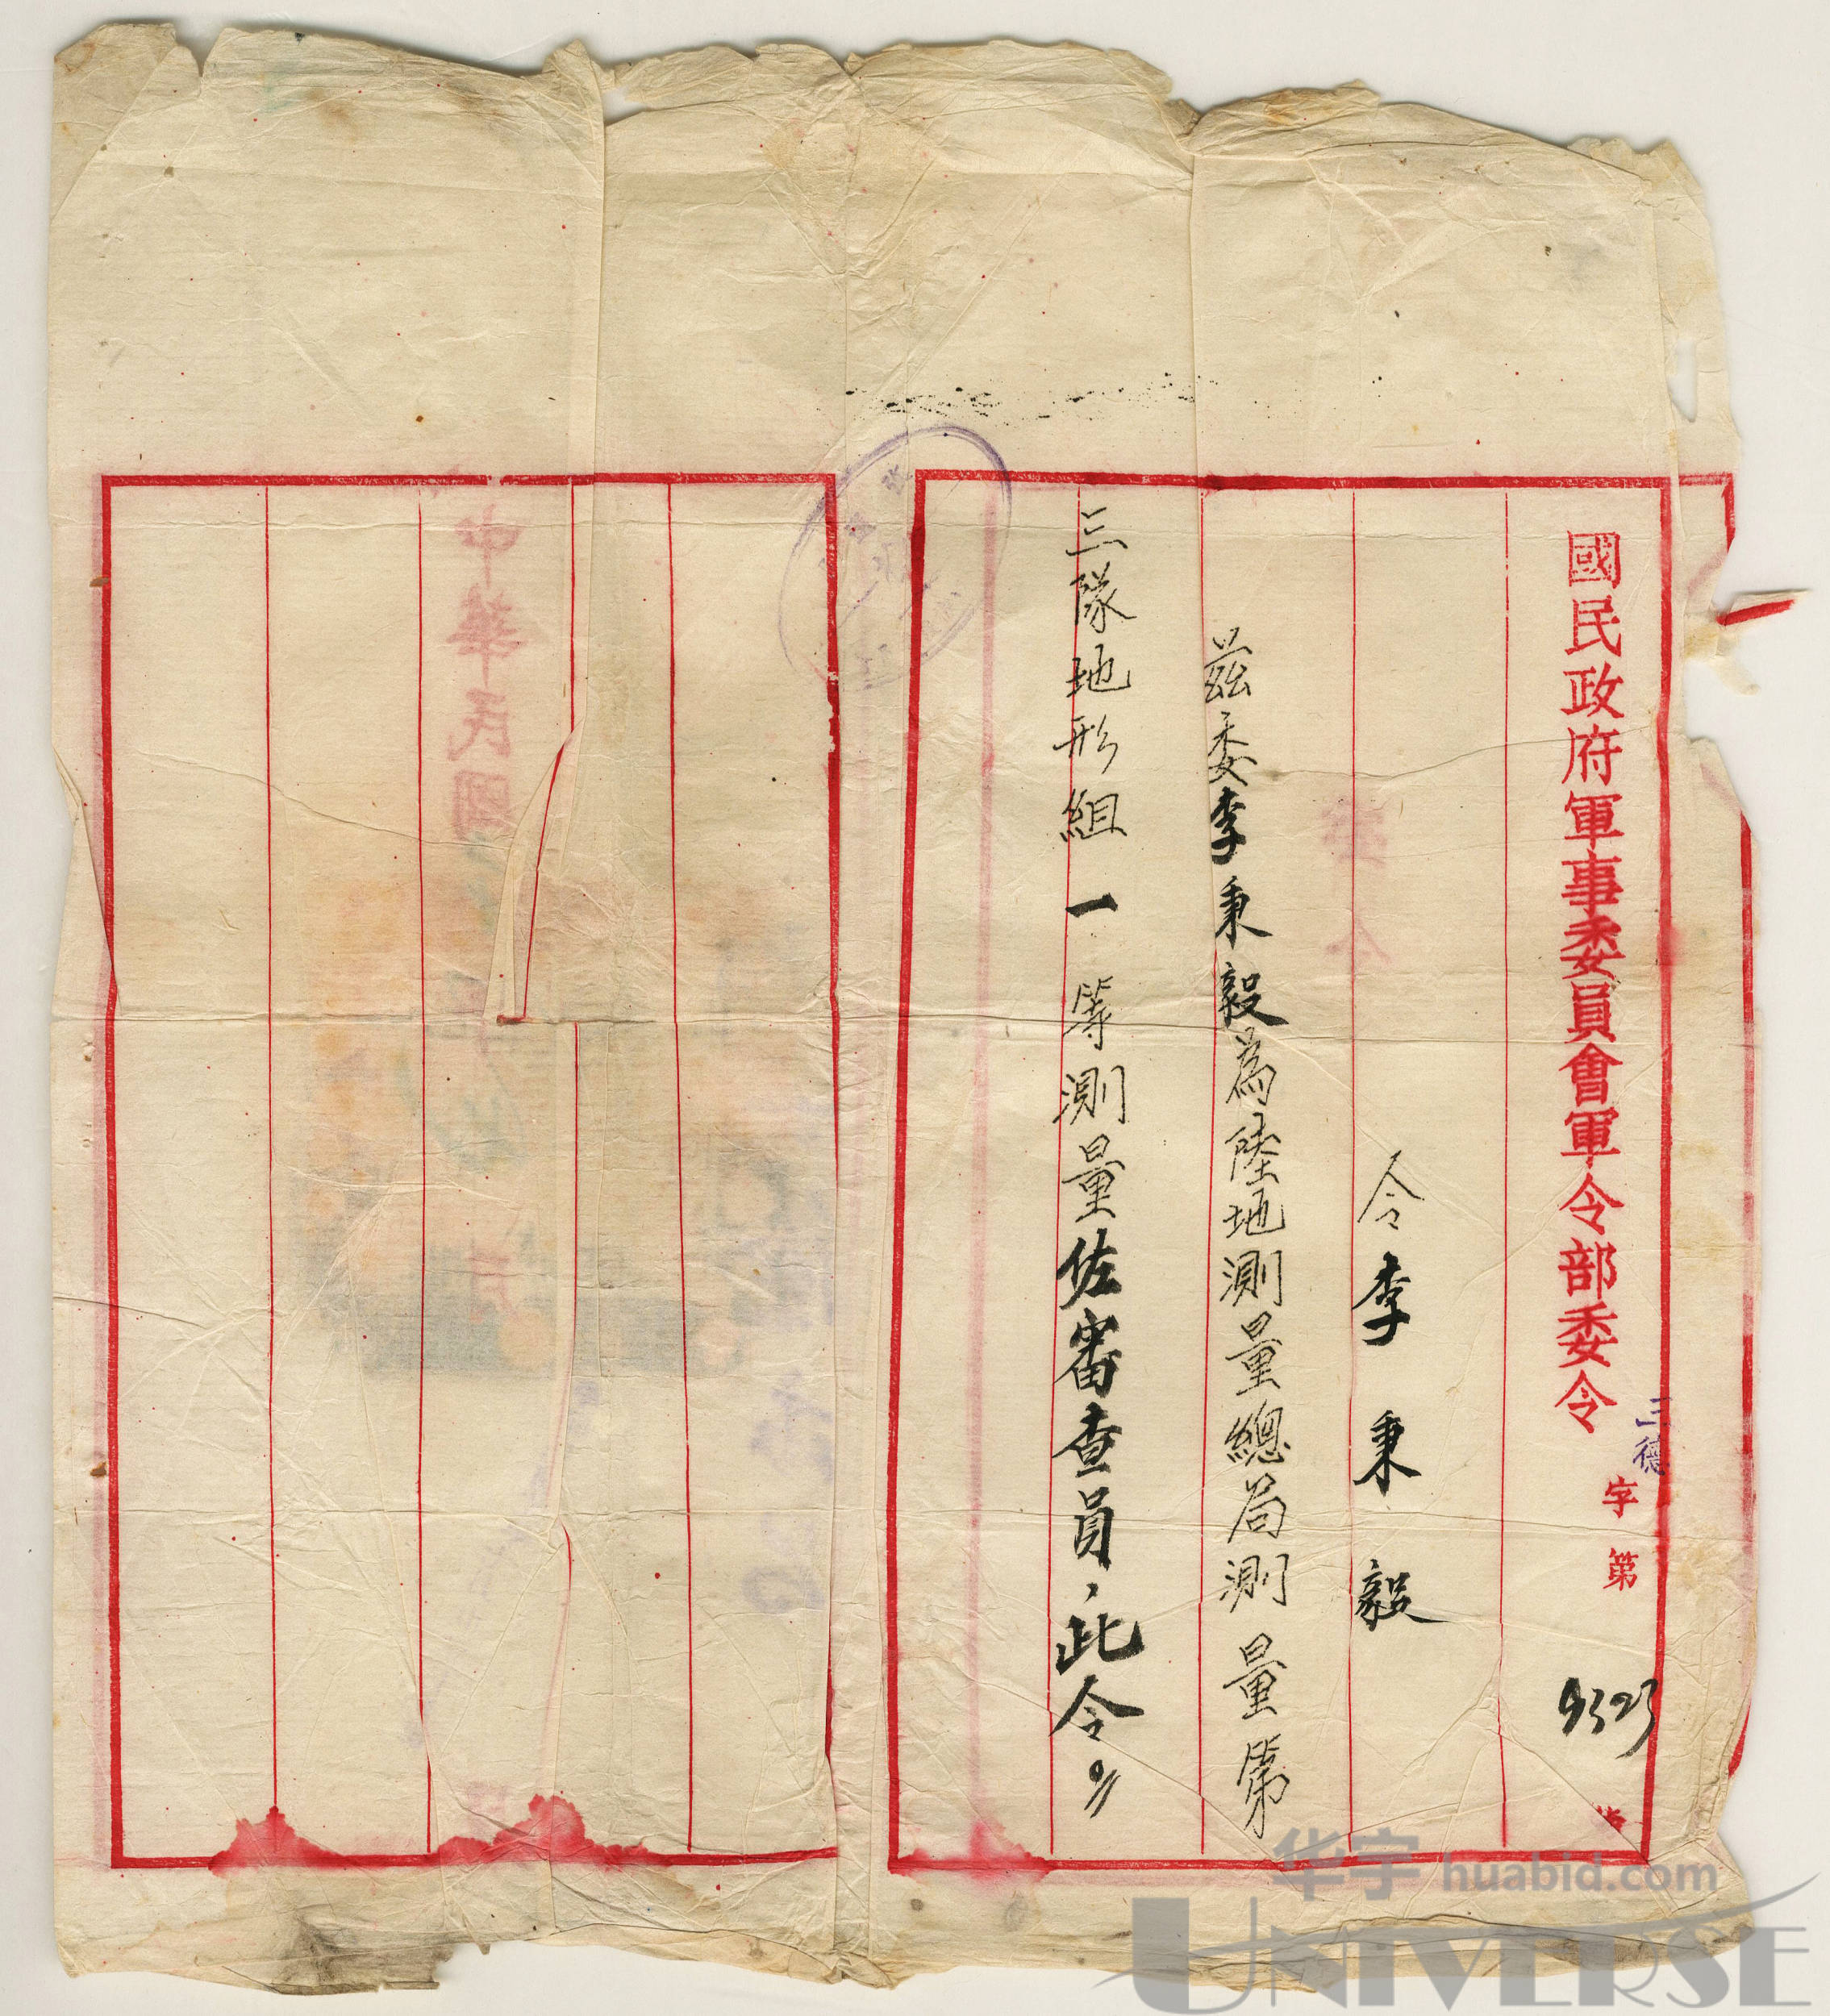 國民政府軍事委員會軍令部委令
三德字第9323號
令李秉毅
茲委李秉毅為陸地測量總局測量第
三隊地形組一等測量佐審查員,此令〃
中華民國
华宇 huabid.com
UNIVERSE